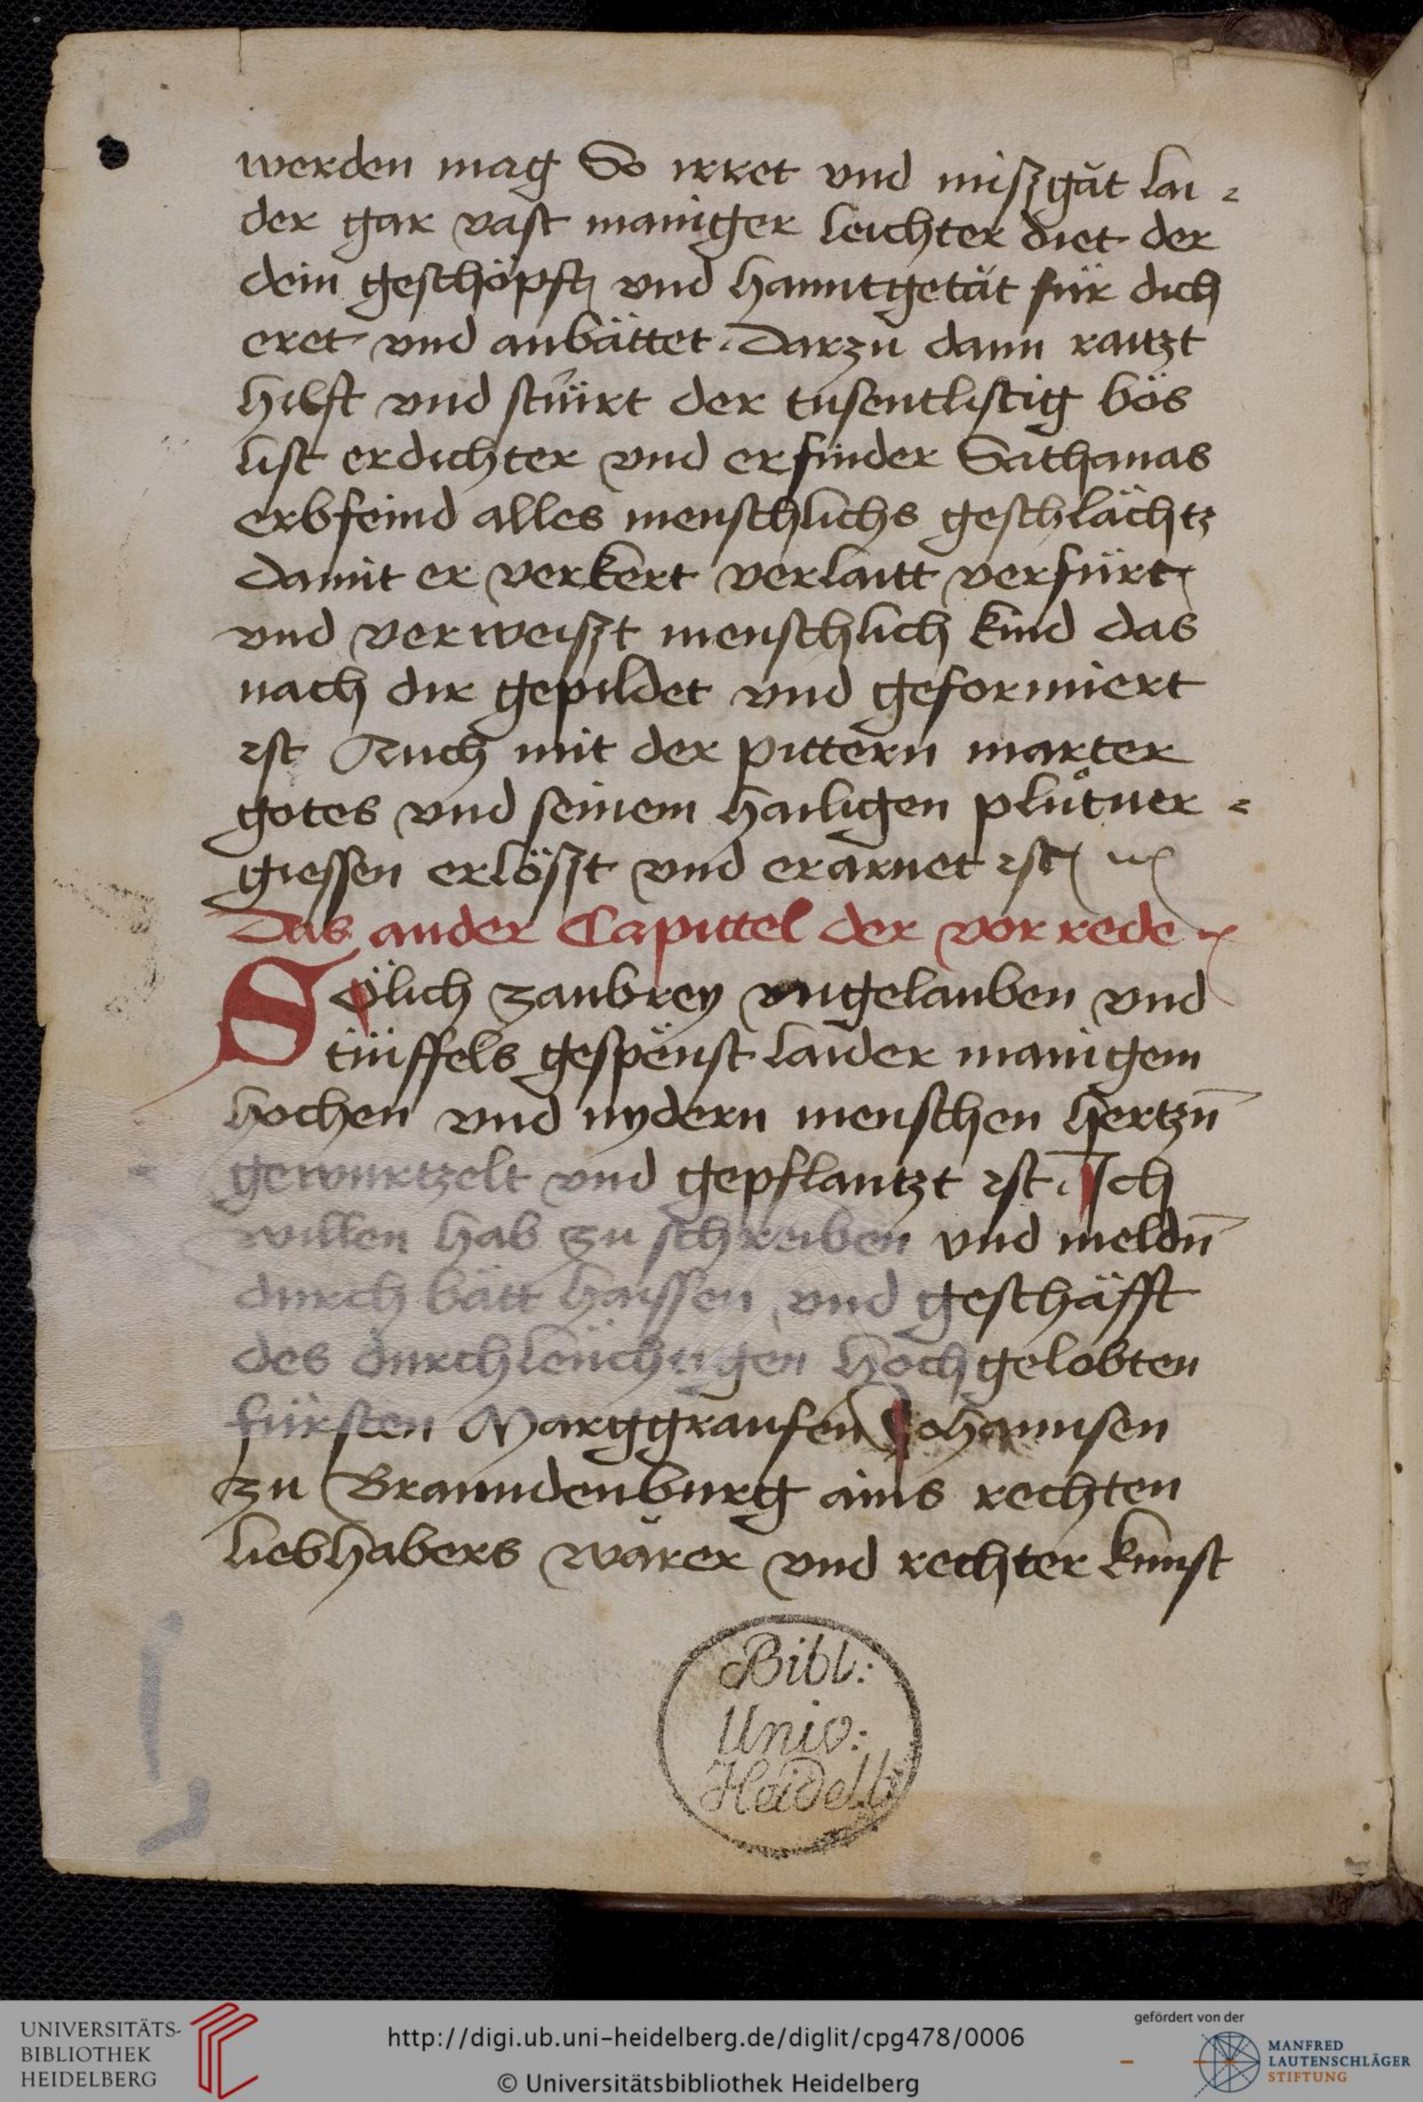 werden mag So irret vnd miszgăt lai =
der gar vast maniger leichter diet der
dein geschöpft vnd hanntgetăt für dich
eret vnd anbättet. Darzu dann raitzt
hilft vnd stüirt der tusentlistig bös
list erdichter vnd erfinder Sathanas
erbfeind alles menschlichs geschlächtz
damit er verkert verlaitt verfürt
vnd verweiszt menschlich kind das
nach dir gepildet vnd geformiert
ist Auch mit der pittern marter
gotes vnd seinem hailigen plůtuer =
giessen erlöszt vnd erarnet ist
Das ander Capittel der vor rede
Sölich zaubrey vngelauben vnd
tüiffels gespënst laider manigem
hochen vnd nydern menschen hertzn̄
gewurtzelt vnd gepflantzt ist. Ich
willen hab zu schreiben vnd meldn̄
durch bätt haissen vnd geschäfft
des durchleüchtigen hochgelobten
fürsten Marggraufen Johannsen
zu Branndenburg ains rechten
liebhabers wărer vnd rechter kunst
Bibl:
Univ:
Heidelb:
UNIVERSITÄTS-
BIBLIOTHEK
HEIDELBERG
http://digi.ub.uni-heidelberg.de/diglit/cpg478/0006
© Universitätsbibliothek Heidelberg
gefördert von der
MANFRED
LAUTENSCHLÄGER
STIFTUNG